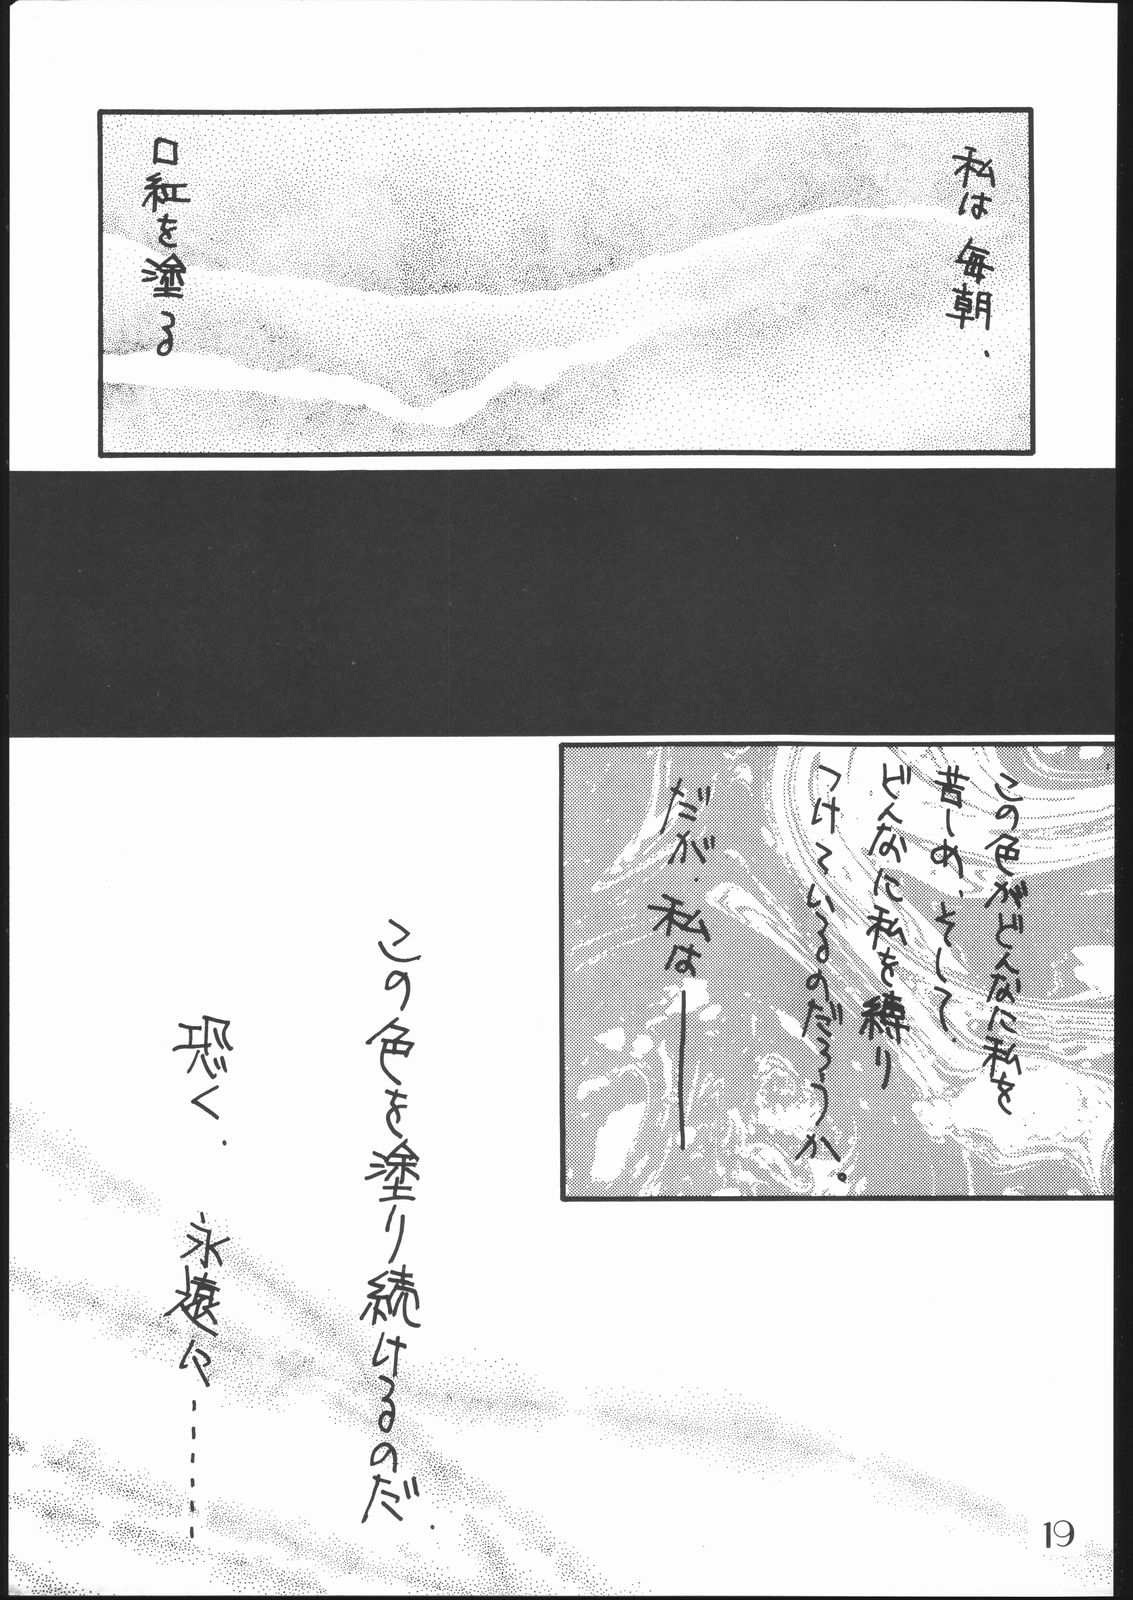 私は毎朝、
口紅を塗る
この色がどんなに私を
苦しめ、そして、
どんなに私を縛り
つけているのだろうか。
だが、私は──
この色を塗り続けるのだ、
恐く、永遠に………
19